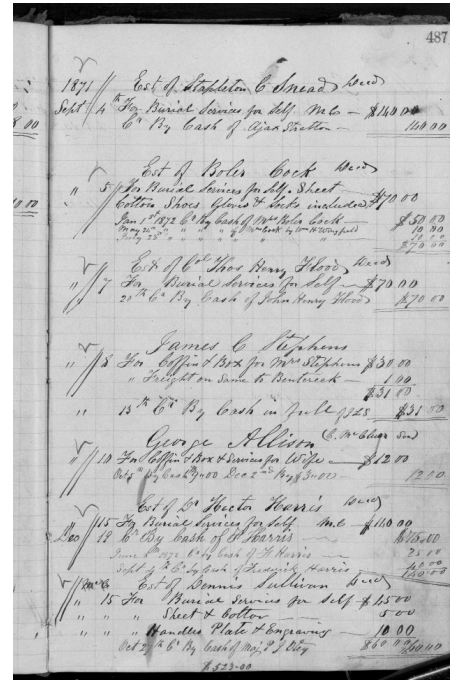 487
1871 Est of Stapleton C Snead Decd
Sept 4th For Burial Services for Self M.C. $140.00
Cr By Cash of Ajax Stratton 140 00
Est of Boler Cock Decd
" 5 For Burial Services for Self. Sheet
Cotton Shoes Gloves & Socks included $70 00
Jan 1st 1872 Cr By Cash of Mrs Boler Cock $50 00
May 24th " " " " of Mrs Cock by Wm H Wingfield 10 00
July 23d " " " " " " 10 00
$70 00
Est of Col Thos Henry Flood Decd
" 7 For Burial Services for Self $70 00
20th Cr By Cash of John Henry Flood $70 00
James C Stephens
" 8 For Coffin & Box for Mrs Stephens $30 00
" Freight on Same to Bentcreek 1 00
$31 00
" 13th Cr By Cash in full $31 00
George Allison
" 10 For Coffin & Box & Services for Wife $12 00
Oct 5th By Cash 9.00 Dec 2nd By $3.00 12 00
Est of Dr Hector Harris Decd
" 15 For Burial Services for Self M.C $140 00
Dec 12 Cr By Cash of F Harris $75.00
June 1872 Cr by Cash of F Harris 25 00
Sept 4th Cr by Cash of Frederick Harris 40 00
140 00
Est of Dennis Sullivan Decd
" 15 For Burial Services for Self $45 00
" " " Sheet & Cotton 5 00
" " " Handles Plate & Engraving 10 00
Oct 27th Cr By Cash of Maj P J $60 00 $60 00
$523.00